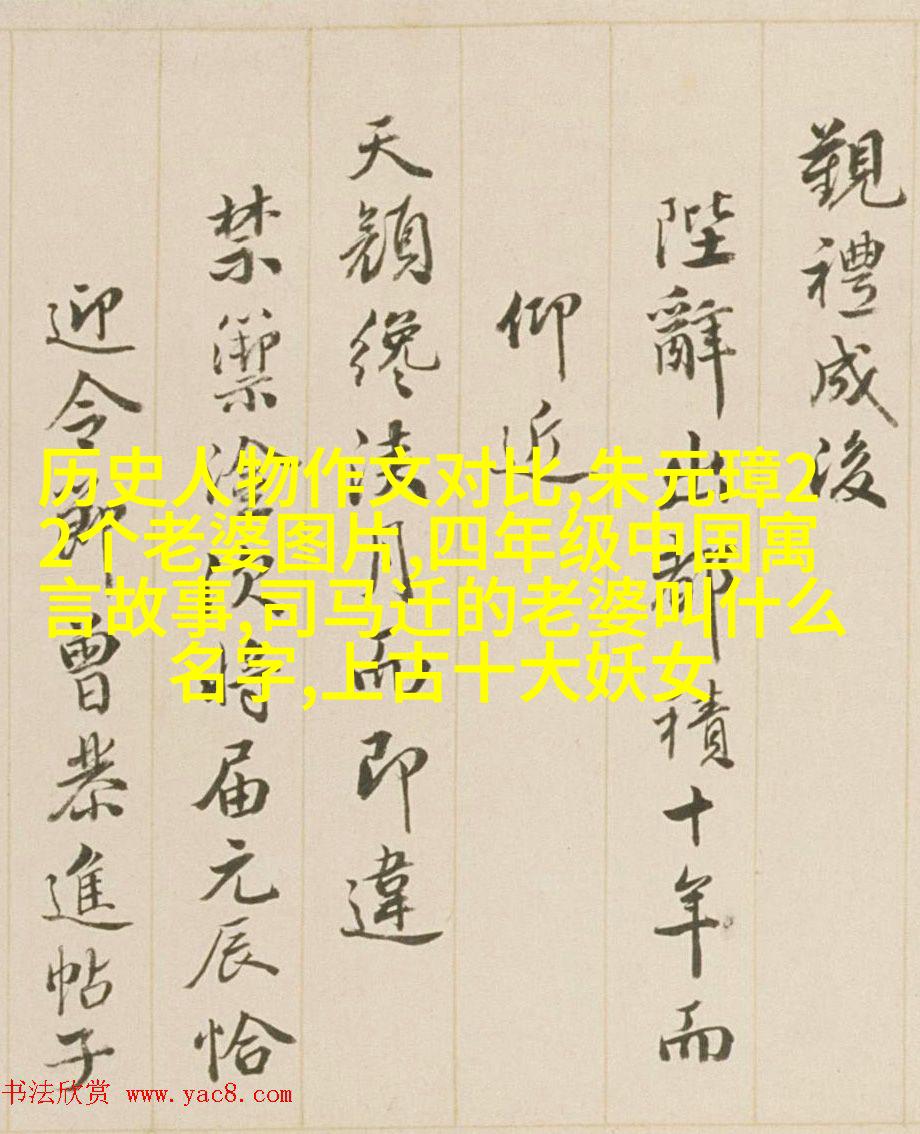 覲禮成後
陛辭出都積十年而
仰近
天顔纔浹月而即違
禁籞塗次將届元辰恰
迎令節曾恭進帖子
历史人物作文对比,朱元璋2
2个老婆图片,四年级中国寓
言故事,司马迁的老婆叫什么
名字,上古十大妖女
书法欣赏 www.yac8.com